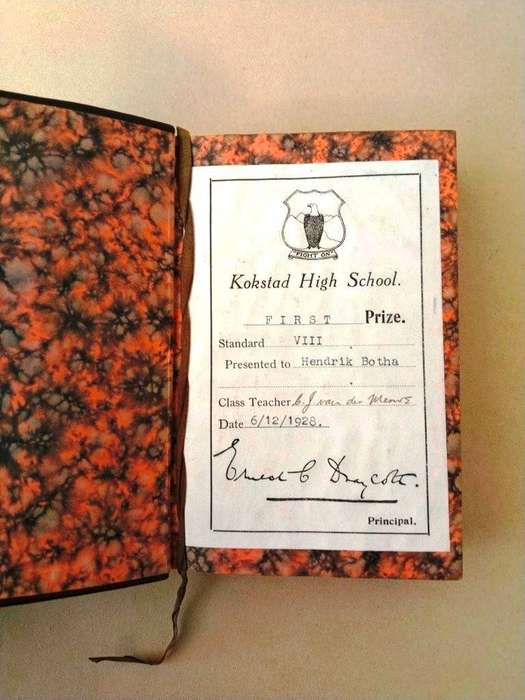 "FIGHT ON"
Kokstad High School.
FIRST Prize.
Standard VIII
Presented to Hendrik Botha
Class Teacher C. J. van der Merwe
Date 6/12/1928.
Ernest C Draycott.
Principal.